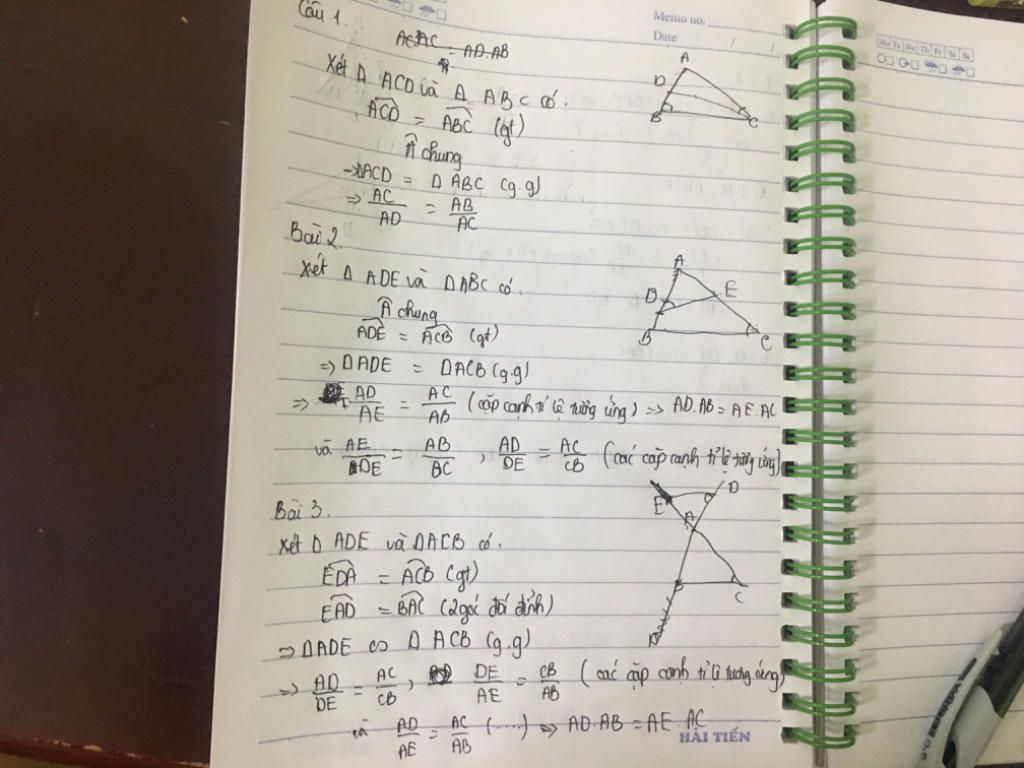 Câu 1.
Memo no.
Date / /
Mo Tu We Th Fr Sa Su
= AD.AB
Xét Δ ACD và Δ ABC có.
ACD = ABC (gt)
Â chung
→ ΔACD = Δ ABC (g.g)
⇒ AC/AD = AB/AC
A
D
B
C
Bài 2
Xét Δ ADE và ΔABC có.
Â chung
ADE = ACB (gt)
⇒ ΔADE = ΔACB (g.g)
⇒ AD/AE = AC/AB (cặp cạnh tỉ lệ tương ứng) ⇒ AD.AB = AE.AC
và AE/DE = AB/BC , AD/DE = AC/CB (các cặp cạnh tỉ lệ tương ứng)
A
D
E
B
C
Bài 3.
Xét Δ ADE và ΔACB có.
EDA = ACB (gt)
EAD = BAC (2 góc đối đỉnh)
⇒ ΔADE ∽ Δ ACB (g.g)
⇒ AD/DE = AC/CB , DE/AE = CB/AB (các cặp cạnh tỉ lệ tương ứng)
và AD/AE = AC/AB (.....) ⇒ AD.AB = AE.AC
E
D
A
B
C
HẢI TIẾN